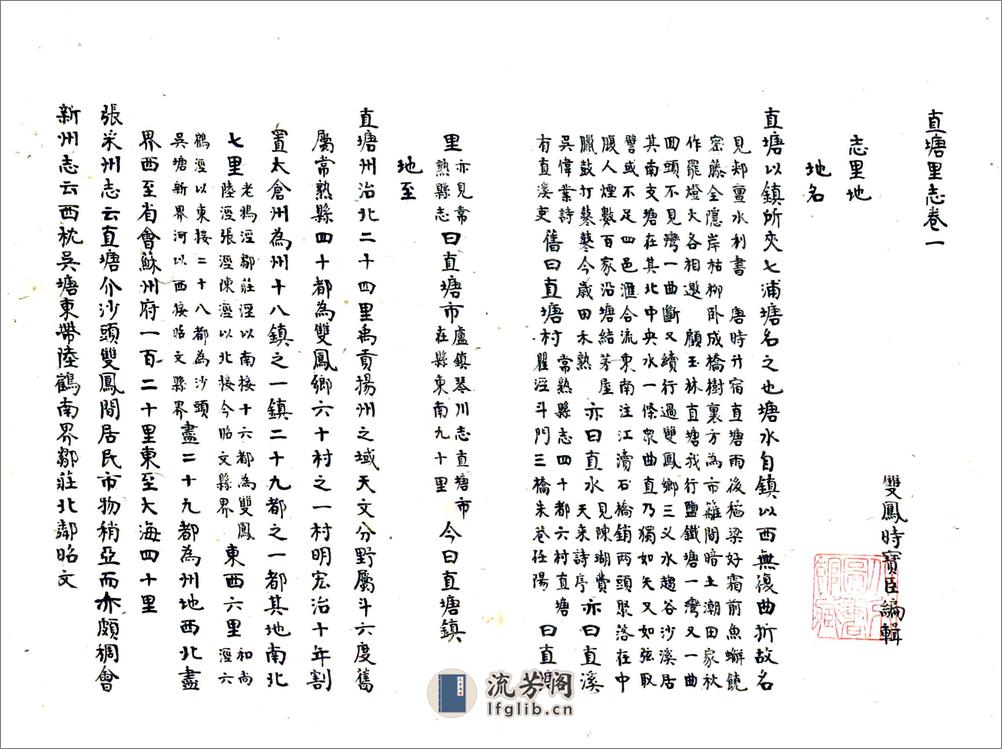 直塘里志卷一
雙鳳時寶臣編輯
志里地
地名
直塘以鎮所夾七浦塘名之也塘水自鎮以西無復曲折故名
見郟亶水利書 唐時升宿直塘雨後稻粱好霜前魚蠏饒
密藤全隱岸枯柳卧成橋樹裏方為市蘺間暗上潮田家秋
作罷燈火各相邀 顧玉林直塘我行鹽鐵塘一灣又一曲
回頭不見灣一曲斷又續行過雙鳳鄉三义水趨谷沙溪居
其南支塘在其北中央水一條衆曲直乃獨如矢又如弦取
譬或不足四邑滙合流東南注江瀆石橋銷兩頭聚落在中
腹人煙數百家沿塘結芳屋
臘鼓打鼕鼕今歲田禾熟 亦曰直水 見陳瑚費天來詩序 亦曰直溪
吳偉業詩有直溪吏 舊曰直塘村 常熟縣志四十都六村直塘瞿涇斗門三橋朱巷任陽 曰直塘
里 亦見常熟縣志 曰直塘市 盧鎮琴川志直塘市在縣東南九十里 今曰直塘鎮
地至
直塘州治北二十四里禹貢揚州之域天文分野屬斗六度舊
屬常熟縣四十都為雙鳳鄉六十村之一村明宏治十年割
置太倉州為州十八鎮之一鎮二十九都之一都其地南北
七里 老鸛涇鄒莊涇以南接十六都為雙鳳陸涇張涇陳涇以北接今昭文縣界 東西六里 和尚涇六
鶴涇以東接二十八都為沙頭吳塘新界河以西接昭文縣界 盡二十九都為州地西北盡
界西至省會蘇州府一百二十里東至大海四十里
張采州志云直塘介沙頭雙鳳間居民市物稍亞而亦頗稠會
新州志云西枕吳塘東帶陸鶴南界鄒莊北鄰昭文
流芳閣
lfglib.cn